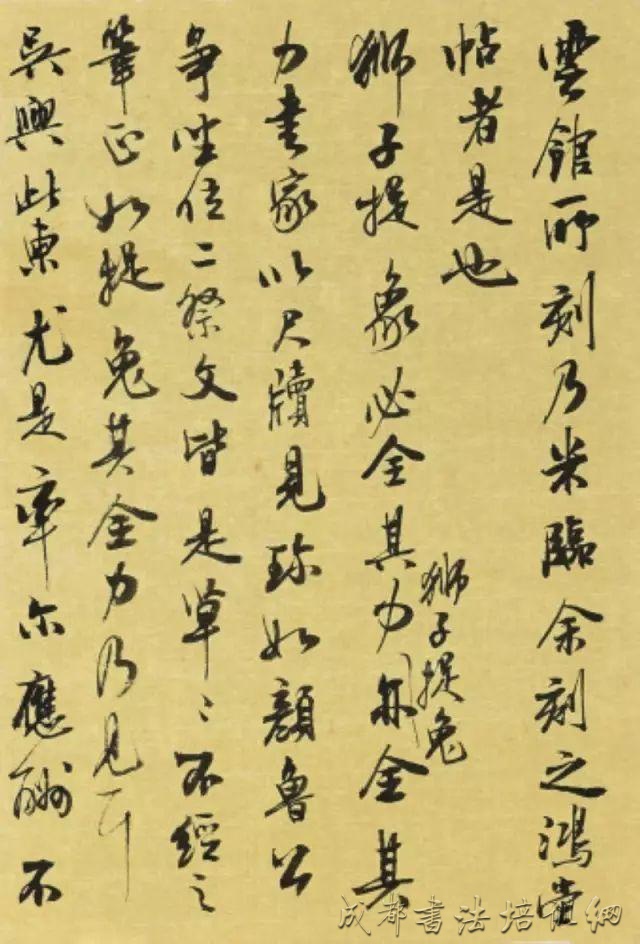 雲館所刻乃米臨余刻之鴻堂
帖者是也
獅子捉象必全其力亦全其
獅子捉兔
力書家以尺牘見珎如顏魯公
爭坐位二祭文皆是草〻不經之
筆正如捉兔其全力乃見耳
吳興此柬尤是率尔應酬不
成都書法培训網